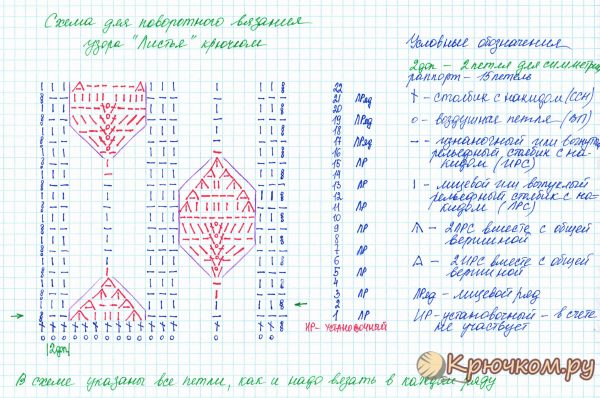 Схема для поворотного вязания
узора "Листья" крючком
Условные обозначения
2доп – 2 петли для симметрии
раппорт – 15 петель
– столбик с накидом (ССН)
– воздушная петля (ВП)
– изнаночный или вогнутый
рельефный столбик с на-
кидом (ИРС)
– лицевой или выпуклый
рельефный столбик с на-
кидом (ЛРС)
– 2ЛРС вместе с общей
вершиной
– 2ИРС вместе с общей
вершиной
ЛРяд – лицевой ряд
ИР – установочный – в счете
не участвует
22
21 ЛРяд
20
19 ЛРяд
18
17 ЛРяд
16
15 ЛР
14
13 ЛР
12
11 ЛР
10
9 ЛР
8
7 ЛР
6
5 ЛР
4
3 ЛР
2
1 ЛР
ИР - УСТАНОВОЧНЫЙ
2доп
В схеме указаны все петли, как и надо вязать в каждом ряду
Крючком.ру